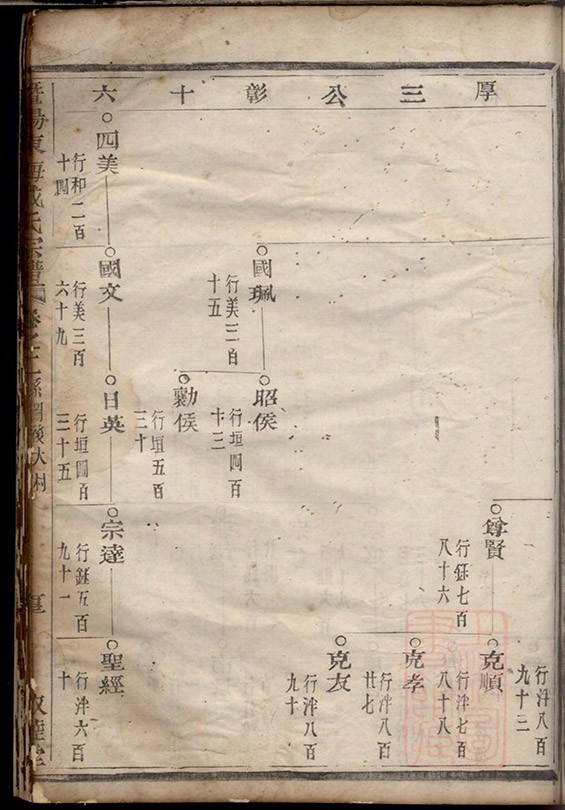 厚三公彰十六
行泮八百
九十三
尊賢
行鈺七百
八十六
克順
行泮七百
八十八
克孝
行泮八百
廿七
克友
行泮八百
九十
國珮
行美三百
十五
昭侯
行垣四百
十三
勷侯
行垣五百
三十
四美
行和二百
十四
國文
行美三百
六十九
日英
行垣四百
三十五
宗達
行鈺五百
九十一
聖經
行泮六百
十
暨陽東
氏宗譜